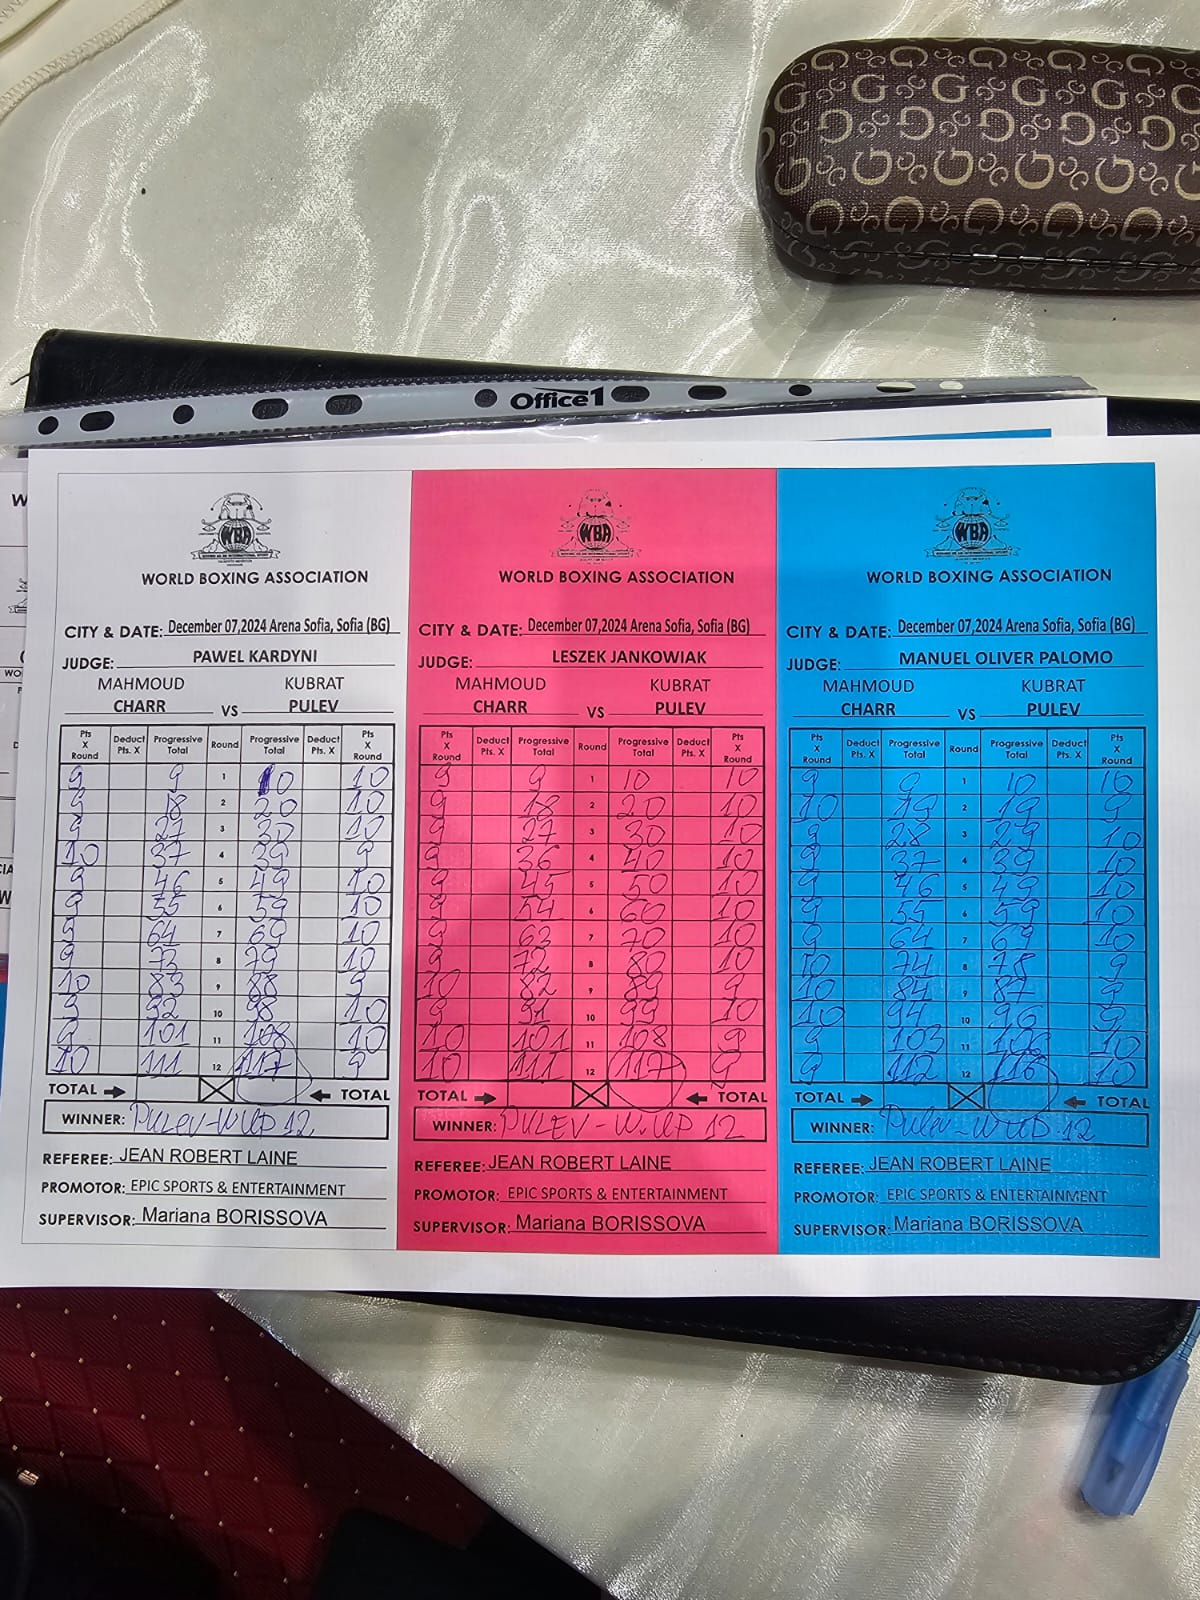 Office1
WBA
WORLD BOXING ASSOCIATION
CITY & DATE: December 07,2024 Arena Sofia, Sofia (BG)
JUDGE: PAWEL KARDYNI
MAHMOUD KUBRAT
CHARR VS PULEV
Pts X Round Deduct Pts. X Progressive Total Round Progressive Total Deduct Pts. X Pts X Round
9 9 1 10 10
9 18 2 20 10
9 27 3 30 10
10 37 4 39 9
9 46 5 49 10
9 55 6 59 10
9 64 7 69 10
9 73 8 79 10
10 83 9 88 9
9 92 10 98 10
9 101 11 108 10
10 111 12 117 9
TOTAL TOTAL
WINNER: PULEV-WUP 12
REFEREE: JEAN ROBERT LAINE
PROMOTOR: EPIC SPORTS & ENTERTAINMENT
SUPERVISOR: Mariana BORISSOVA
WBA
WORLD BOXING ASSOCIATION
CITY & DATE: December 07,2024 Arena Sofia, Sofia (BG)
JUDGE: LESZEK JANKOWIAK
MAHMOUD KUBRAT
CHARR VS PULEV
Pts X Round Deduct Pts. X Progressive Total Round Progressive Total Deduct Pts. X Pts X Round
9 9 1 10 10
9 18 2 20 10
9 27 3 30 10
9 36 4 40 10
9 45 5 50 10
9 54 6 60 10
9 63 7 70 10
9 72 8 80 10
10 82 9 89 9
9 91 10 99 10
10 101 11 108 9
10 111 12 117 9
TOTAL TOTAL
WINNER: PULEV - W.UP 12
REFEREE: JEAN ROBERT LAINE
PROMOTOR: EPIC SPORTS & ENTERTAINMENT
SUPERVISOR: Mariana BORISSOVA
WBA
WORLD BOXING ASSOCIATION
CITY & DATE: December 07,2024 Arena Sofia, Sofia (BG)
JUDGE: MANUEL OLIVER PALOMO
MAHMOUD KUBRAT
CHARR VS PULEV
Pts X Round Deduct Pts. X Progressive Total Round Progressive Total Deduct Pts. X Pts X Round
9 9 1 10 10
10 19 2 19 9
9 28 3 29 10
9 37 4 39 10
9 46 5 49 10
9 55 6 59 10
9 64 7 69 10
10 74 8 78 9
10 84 9 87 9
10 94 10 96 9
9 103 11 106 10
9 112 12 116 10
TOTAL TOTAL
WINNER: Pulev-WUD.12
REFEREE: JEAN ROBERT LAINE
PROMOTOR: EPIC SPORTS & ENTERTAINMENT
SUPERVISOR: Mariana BORISSOVA